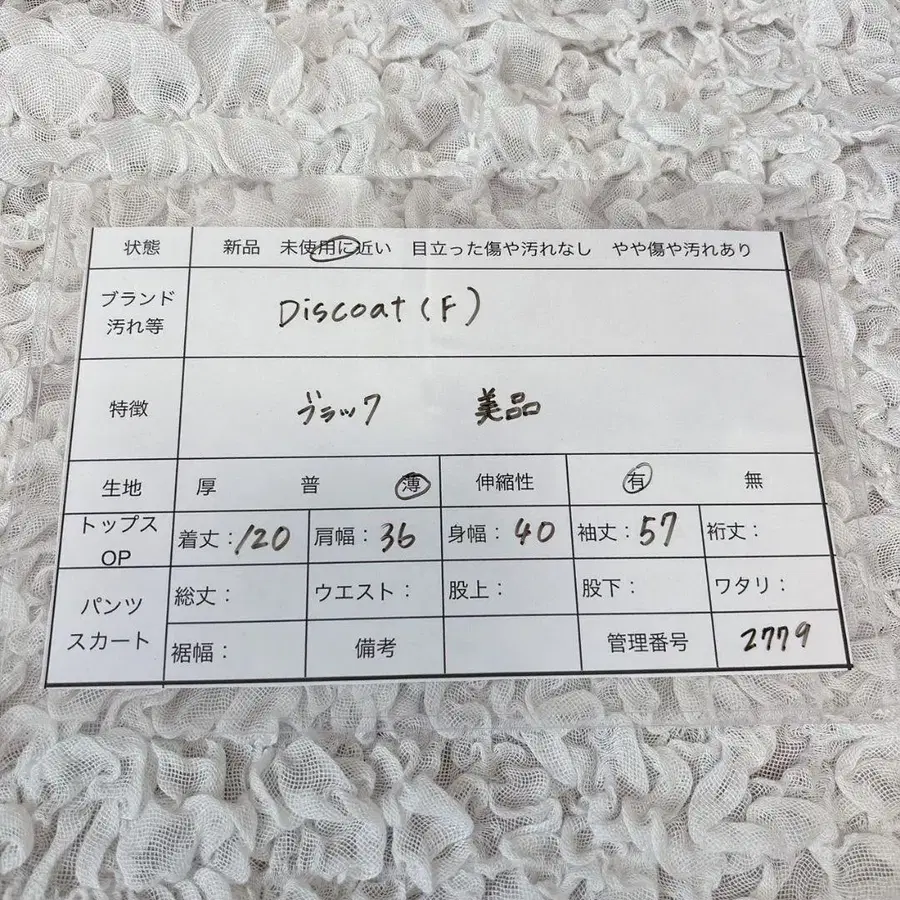 状態 新品 未使用に近い 目立った傷や汚れなし やや傷や汚れあり
ブランド
汚れ等
Discoat (F)
特徴 ブラック 美品
生地 厚 普 薄 伸縮性 有 無
トップス
OP
着丈：120 肩幅：36 身幅：40 袖丈：57 裄丈：
パンツ
スカート
総丈： ウエスト： 股上： 股下： ワタリ：
裾幅： 備考 管理番号 2779